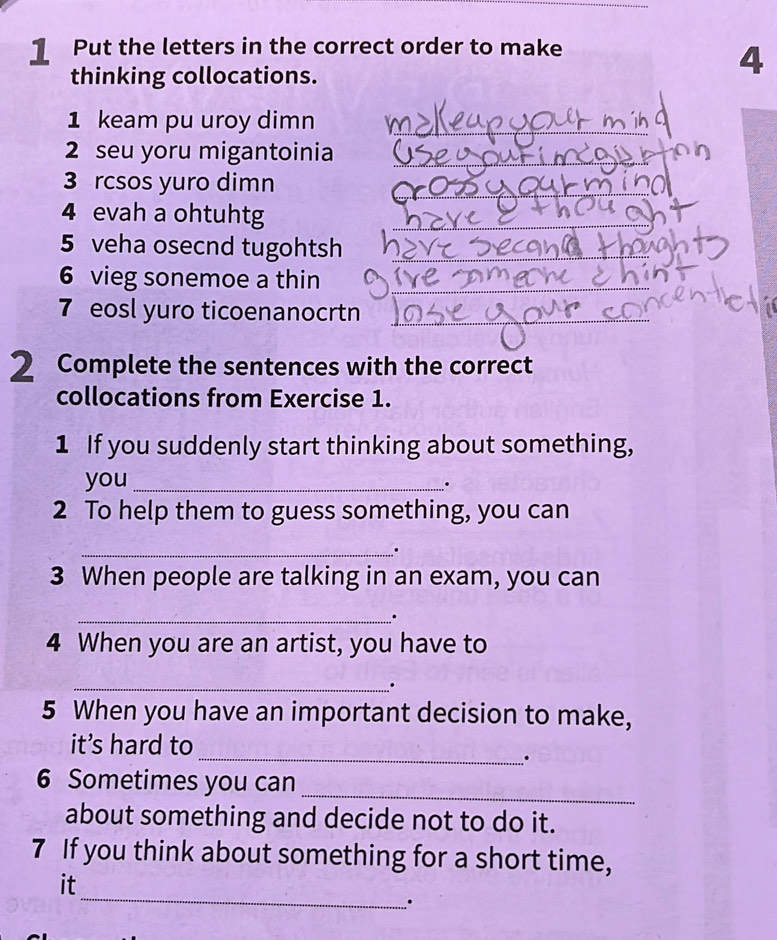 1 Put the letters in the correct order to make 4
thinking collocations.
1 keam pu uroy dimn make up your mind
2 seu yoru migantoinia use your
3 rcsos yuro dimn cross your mind
4 evah a ohtuhtg have a thought
5 veha osecnd tugohtsh have second thoughts
6 vieg sonemoe a thin give someone a hint
7 eosl yuro ticoenanocrtn lose your
2 Complete the sentences with the correct
collocations from Exercise 1.
1 If you suddenly start thinking about something,
you .
2 To help them to guess something, you can
.
3 When people are talking in an exam, you can
.
4 When you are an artist, you have to
.
5 When you have an important decision to make,
it's hard to .
6 Sometimes you can
about something and decide not to do it.
7 If you think about something for a short time,
it .